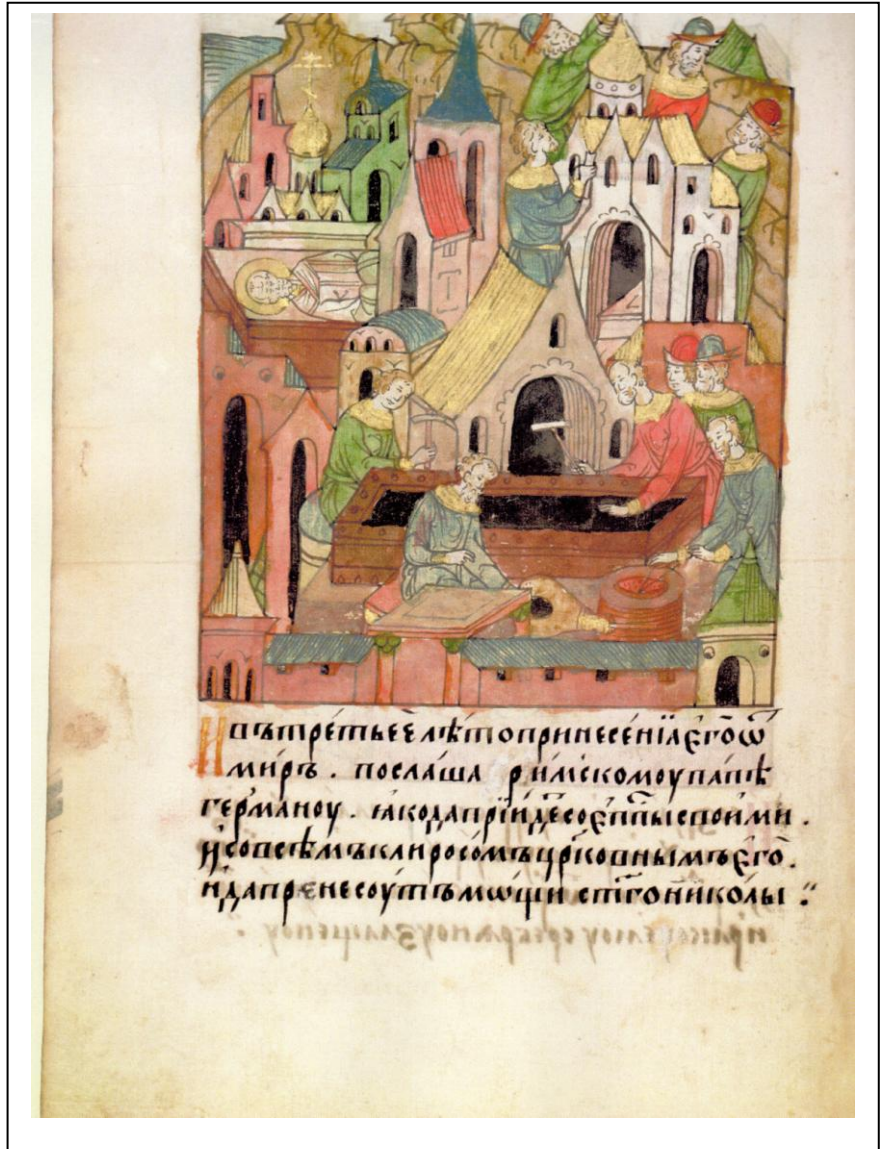 И въ трétьее лѣто принесéнїѧ єго̀ ѿ
миръ . послáша рúмскомоу пáпѣ
гермáноу . ꙗко да прїи́дет со єппы своими .
и҆ со всѣмъ клиросóмъ црковнымъ єго̀ .
и҆ да пренесоу́тъ мѡщи стго николы ⁘